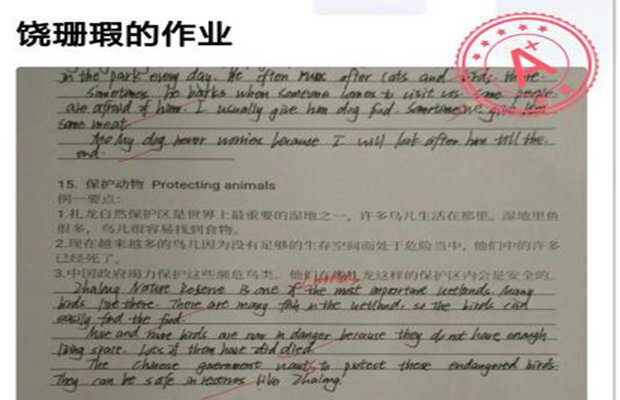 饶珊瑕的作业
A
in the park every day. He often runs after cats and birds there.
Sometimes he barks when someone comes to visit us. Some people
are afraid of him. I usually give him dog food. Sometimes, we give him
some meat.
My dog never worries because I will look after him till the
end.
15. 保护动物 Protecting animals
例一要点:
1.扎龙自然保护区是世界上最重要的湿地之一,许多鸟儿生活在那里。湿地里鱼
很多,鸟儿很容易找到食物。
2.现在越来越多的鸟儿因为没有足够的生存空间而处于危险当中,他们中的许多
已经死了。
3.中国政府竭力保护这些濒危鸟类。他们在像扎龙这样的保护区内会是安全的。
Zhalong Nature Reserve is one of the most important wetlands. Many
birds live there. There are many fish in the wetland, so the birds can
easily find the food.
More and more birds are now in danger because they do not have enough
living space. Lots of them have did died.
The Chinese government wants to protect these endangered birds.
They can be safe in reserves like Zhalong.